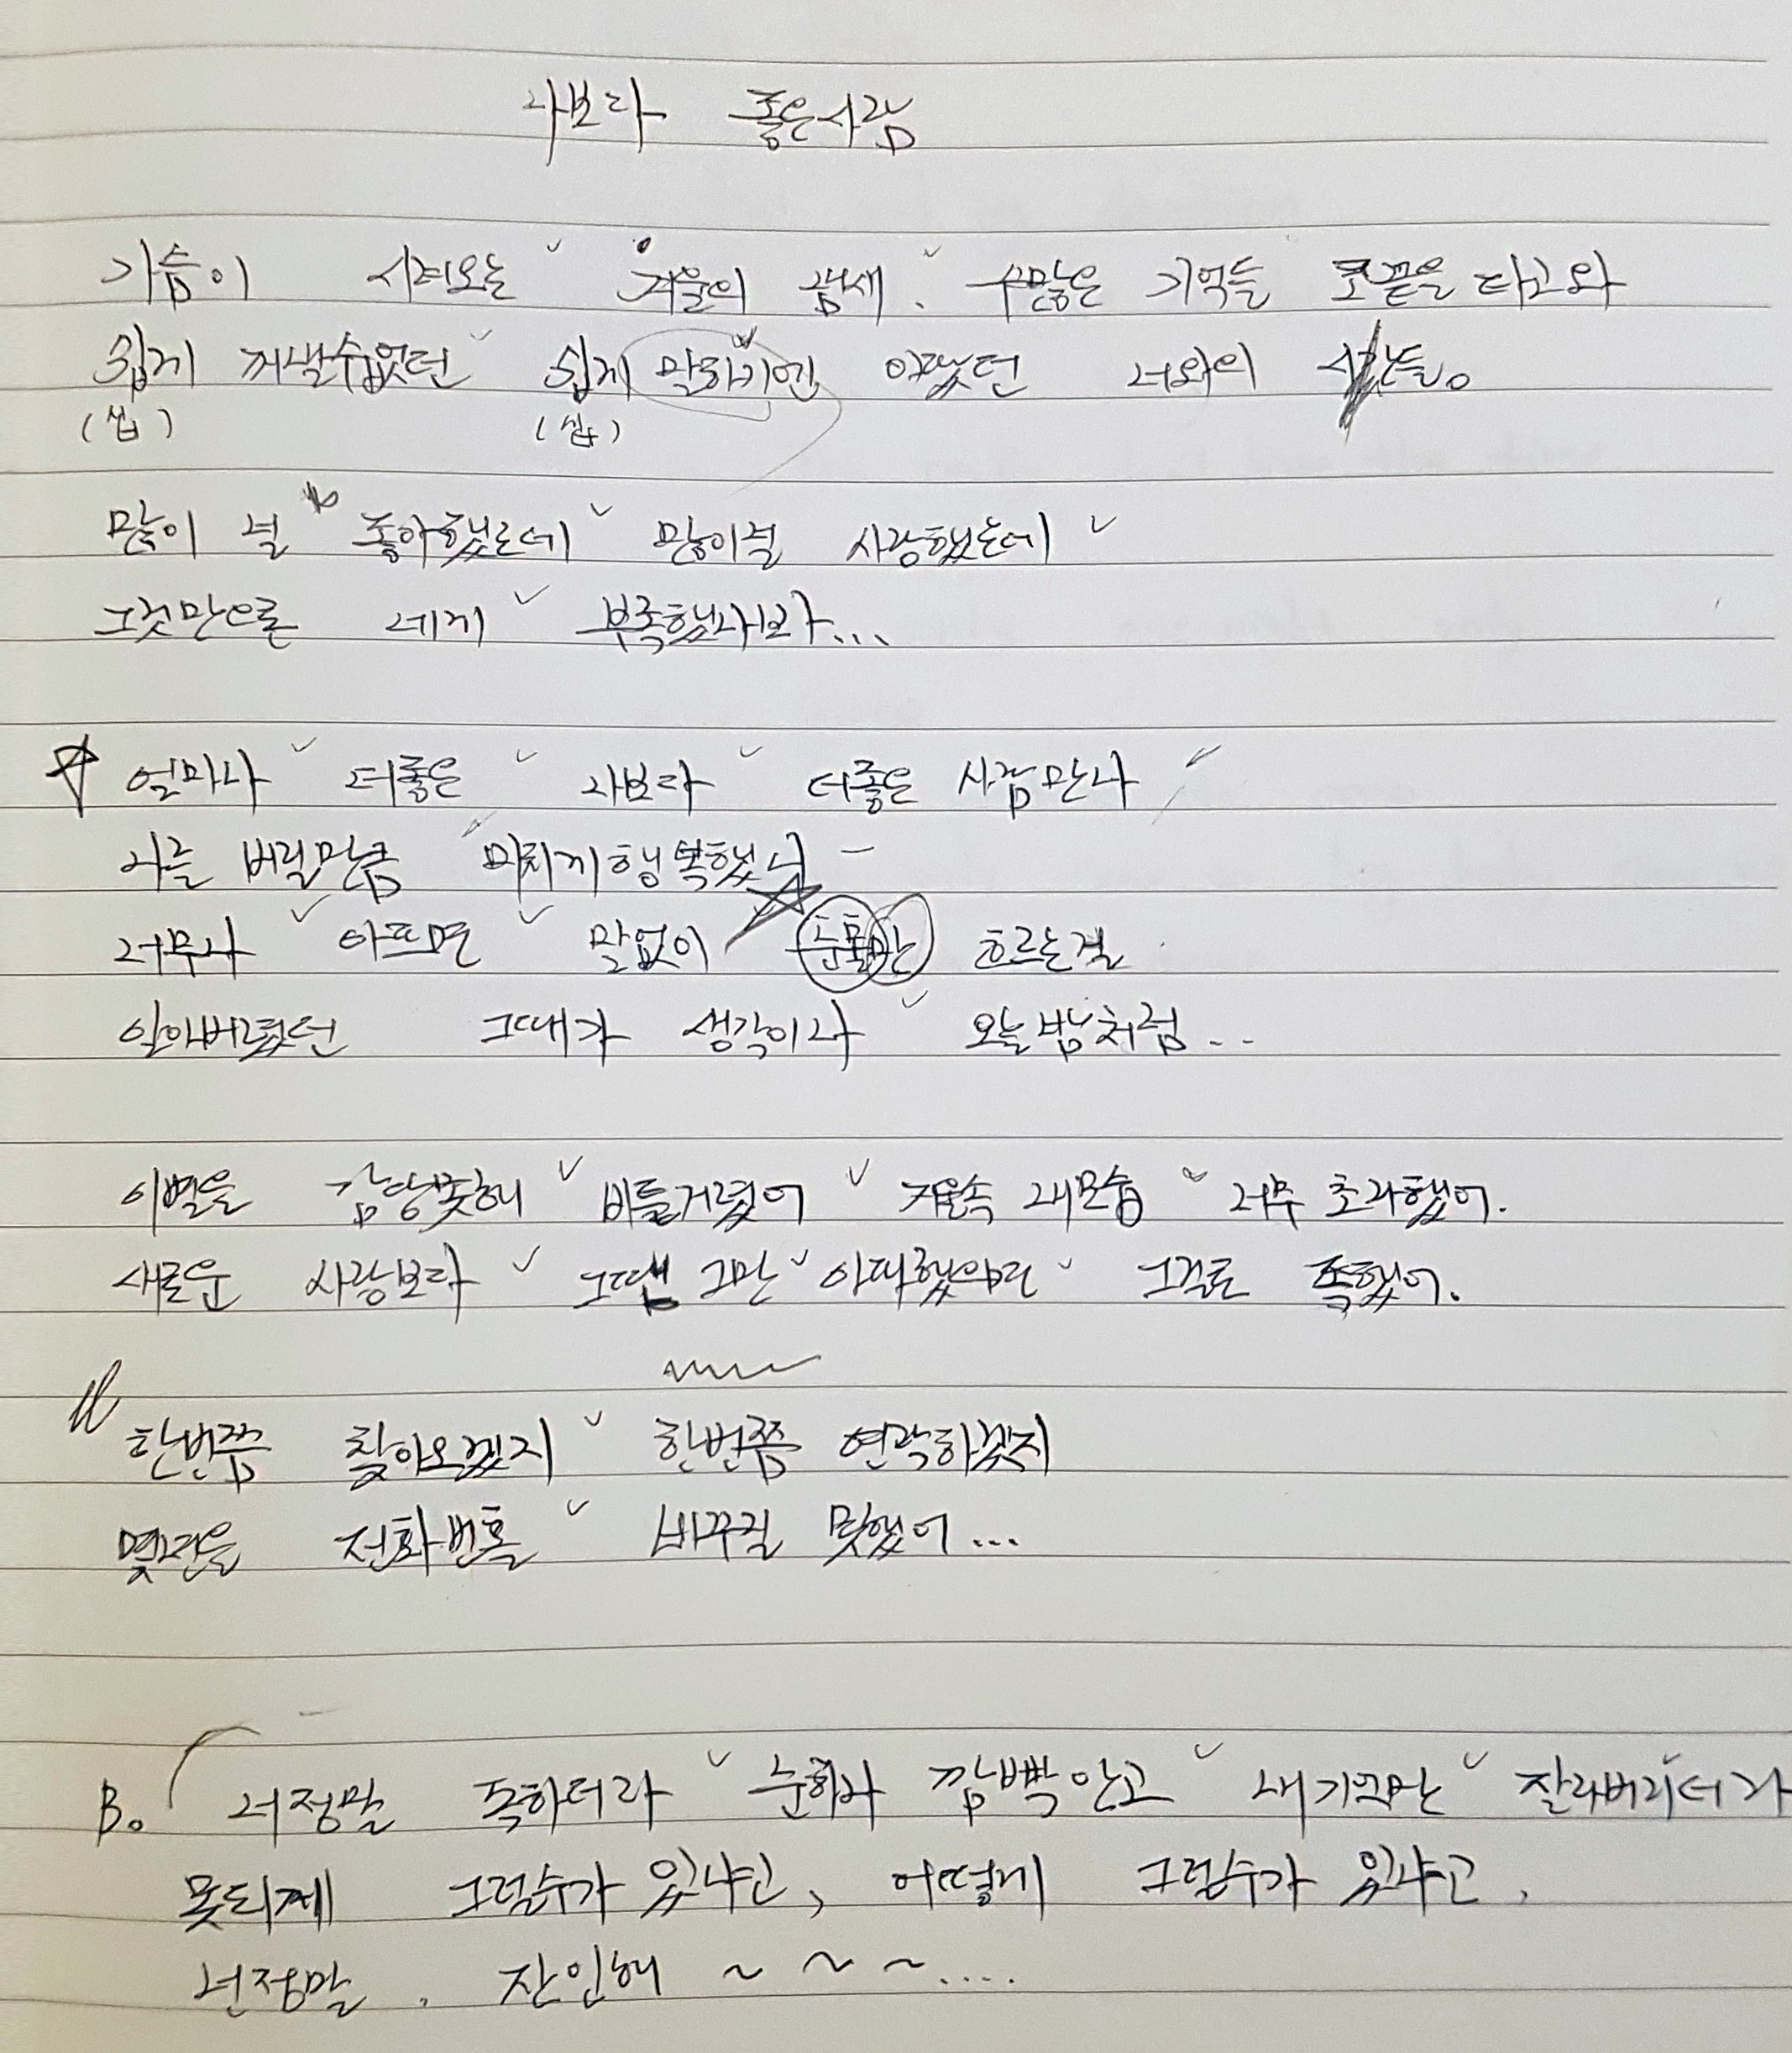 나보다 좋은사람
가슴이 시려오는 겨울의 냄새. 수많은 기억들 코끝을 타고와
쉽게 꺼낼수없었던 쉽게 말하기엔 아팠던 너와의 시간들。
(씹) (씹)
많이 널 좋아했는데 많이널 사랑했는데
그것만으론 네게 부족했나봐...
얼마나 더좋은 나보다 더좋은 사람만나
나를 버릴만큼 미치게행복했니
너무나 아프면 말없이 눈물만 흐르는걸
잊어버렸던 그때가 생각이나 오늘밤처럼...
이별을 감당못해 비틀거렸어 거울속 내모습 너무 초라했어.
새로운 사랑보다 그땐 그만 아파했으면 그걸로 족했어.
한번쯤 찾아오겠지 한번쯤 연락하겠지
몇년을 전화번홀 바꾸질 못했어...
B。 너정말 독하더라 눈하나 깜빡 안고 내기억만 잘라버리더라
못되게 그럴수가 있냐고, 어떻게 그럴수가 있냐고,
넌정말. 잔인해 ~ ~ ~....